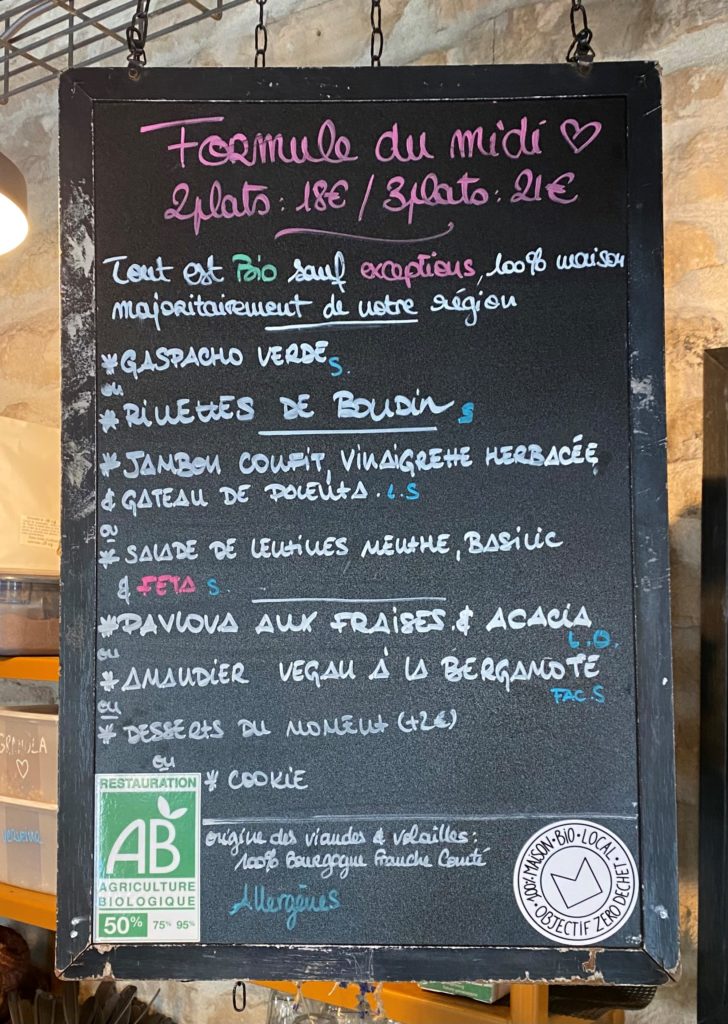 Formule du midi ♡
2 plats : 18€ / 3 plats : 21€
Tout est Bio sauf exceptions, 100% maison
majoritairement de notre région
* GASPACHO VERDE S.
ou
* RILLETTES DE BOUDIN S
* JAMBON CONFIT, VINAIGRETTE HERBACÉE
& GATEAU DE POLENTA. L.S
ou
* SALADE DE LENTILLES MENTHE, BASILIC
& FETA S.
* PAVLOVA AUX FRAISES & ACACIA
L.O.
ou
* AMANDIER VEGAN À LA BERGAMOTE
FAC.S
ou
* DESSERTS DU MOMENT (+2€)
ou
* COOKIE
RESTAURATION
AB
AGRICULTURE
BIOLOGIQUE
50% 75% 95%
origine des viandes & volailles :
100% Bourgogne Franche Comté
Allergènes
100% MAISON • BIO • LOCAL •
OBJECTIF ZÉRO DÉCHET
GRANOLA
♡
verveine